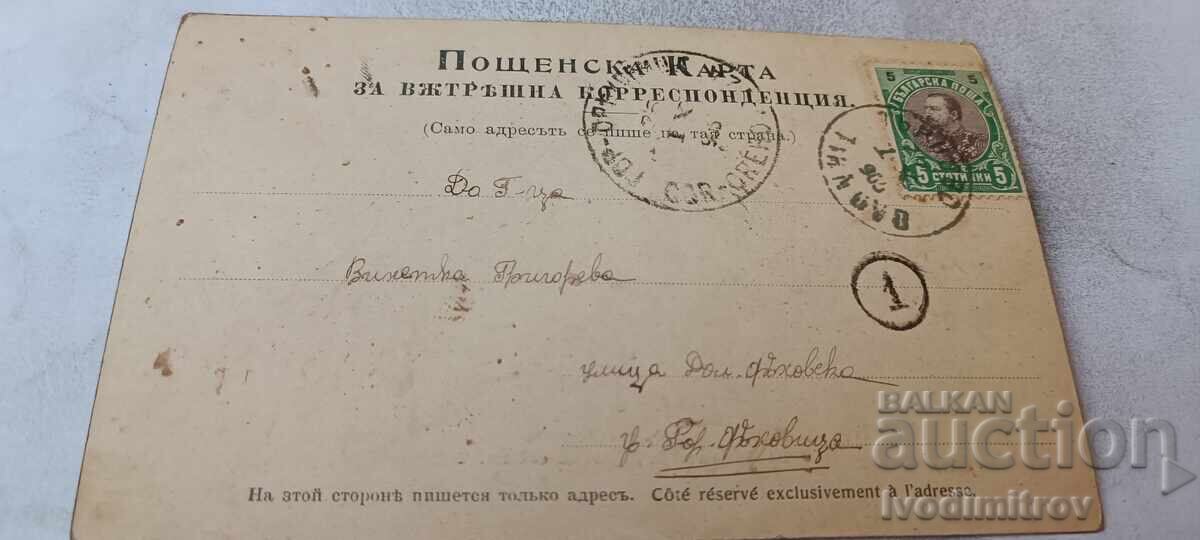 ПОЩЕНСКА КАРТА
ЗА ВѪТРѢШНА КОРРЕСПОНДЕНЦИЯ.
(Само адресътъ се пише на тая страна.)
5 5
БЪЛГАРСКА ПОЩА
5 СТОТИНКИ 5
GOR-OREHO
ВАРНА
До Г-ца
Винетка Григорова
1
улица Дол. Орѣховска
гр. Гор. Орѣховица
На этой сторонѣ пишется только адресъ. Côté réservé exclusivement à l'adresse.
BALKAN
auction
Ivodimitrov